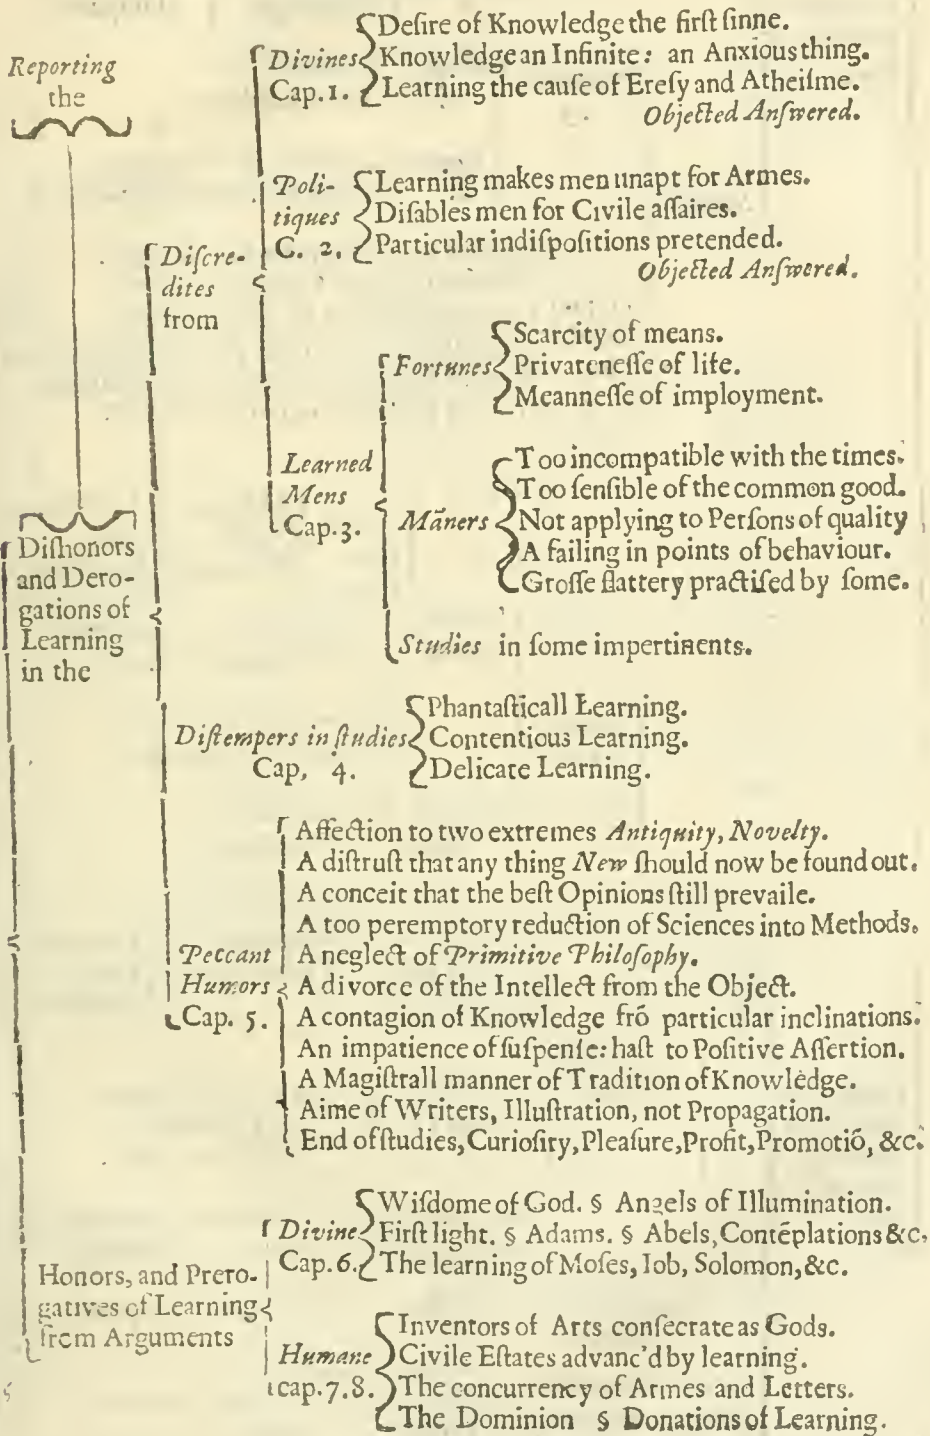 Reporting
the
Dishonors
and Dero-
gations of
Learning
in the
Discre-
dites
from
Divines
Cap. 1.
Deſire of Knowledge the firſt ſinne.
Knowledge an Infinite: an Anxious thing.
Learning the cauſe of Ereſy and Atheiſme.
Objected Anſwered.
Poli-
tiques
C. 2.
Learning makes men unapt for Armes.
Diſables men for Civile affaires.
Particular indiſpoſitions pretended.
Objected Anſwered.
Learned
Mens
Cap. 3.
Fortunes
Scarcity of means.
Privateneſſe of life.
Meanneſſe of imployment.
Māners
Too incompatible with the times.
Too ſenſible of the common good.
Not applying to Perſons of quality
A failing in points of behaviour.
Groſſe flattery practiſed by ſome.
Studies in ſome impertinents.
Diſtempers in ſtudies
Cap, 4.
Phantaſticall Learning.
Contentious Learning.
Delicate Learning.
Peccant
Humors
Cap. 5.
Affection to two extremes Antiquity, Novelty.
A diſtruſt that any thing New ſhould now be found out.
A conceit that the beſt Opinions ſtill prevaile.
A too peremptory reduction of Sciences into Methods.
A neglect of Primitive Philoſophy.
A divorce of the Intellect from the Object.
A contagion of Knowledge frō particular inclinations.
An impatience of ſuſpenſe: haſt to Poſitive Aſſertion.
A Magiſtrall manner of Tradition of Knowledge.
Aime of Writers, Illuſtration, not Propagation.
End of ſtudies, Curioſity, Pleaſure, Profit, Promotiō, &c.
Honors, and Prero-
gatives of Learning
from Arguments
Divine
Cap. 6.
Wiſdome of God. § Angels of Illumination.
Firſt light. § Adams. § Abels, Contēplations &c,
The learning of Moſes, Iob, Solomon, &c.
Humane
cap. 7. 8.
Inventors of Arts conſecrate as Gods.
Civile Eſtates advanc'd by learning.
The concurrency of Armes and Letters.
The Dominion § Donations of Learning.